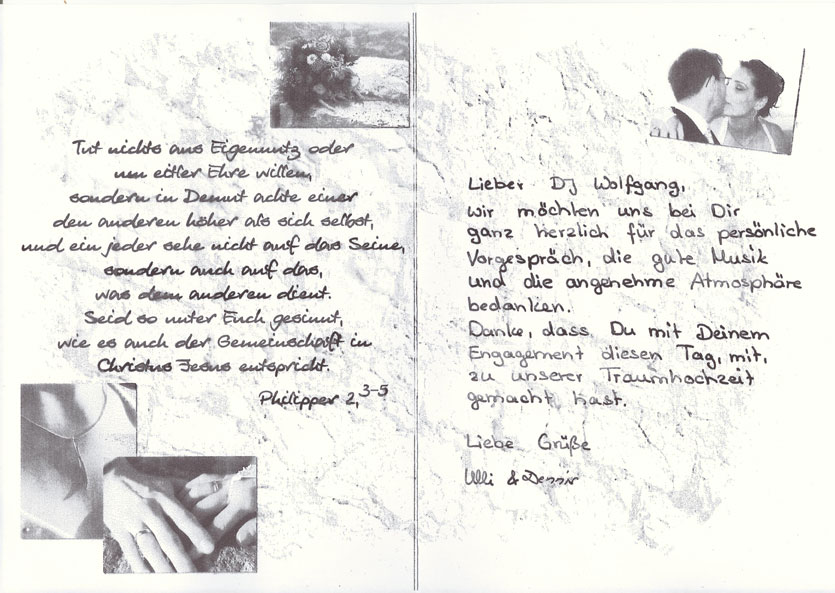 Tut nichts aus Eigennutz oder
um eitler Ehre willen,
sondern in Demut achte einer
den anderen höher als sich selbst,
und ein jeder sehe nicht auf das Seine,
sondern auch auf das,
was dem anderen dient.
Seid so unter Euch gesinnt,
wie es auch der Gemeinschaft in
Christus Jesus entspricht.
Philipper 2, 3-5
Lieber DJ Wolfgang,
wir möchten uns bei Dir
ganz herzlich für das persönliche
Vorgespräch, die gute Musik
und die angenehme Atmosphäre
bedanken.
Danke, dass Du mit Deinem
Engagement diesen Tag, mit,
zu unserer Traumhochzeit
gemacht hast.
Liebe Grüße
Ulli & Dennis